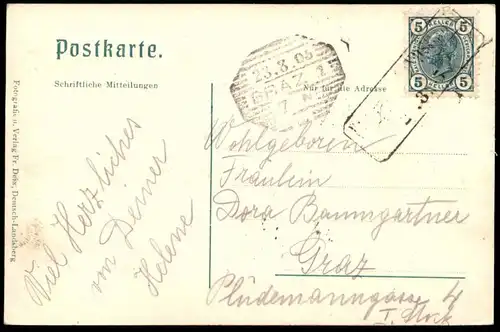 Postkarte.
Schriftliche Mitteilungen
Nur für die Adresse
Fotografie u. Verlag Fr. Dehr, Deutsch-Landsberg
Viel Herzliches
von Deiner
Helene
23.3.05
GRAZ 1
7 N
5 5
5 5
Wohlgeboren
Fräulein
Dora Baumgartner
Graz
Plüdemanngasse 4
I. Stock